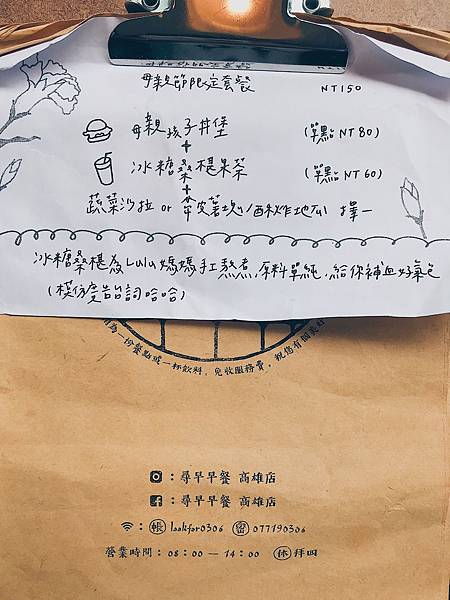 母親節限定套餐 NT150
母親孩子丼堡 (單點 NT 80)
+
冰糖桑椹果茶 (單點 NT 60)
+
蔬菜沙拉 or 帶皮薯塊/酥炸地瓜 擇一
冰糖桑椹為Lulu媽媽手工熬煮,原料單純,給你補血好氣色
(模仿廣告詞哈哈)
為一份餐點或一杯飲料,免收服務費,祝您有個美好
:尋早早餐 高雄店
:尋早早餐 高雄店
:帳 lookfor0306 密 077190306
營業時間:08:00 — 14:00 休 拜四